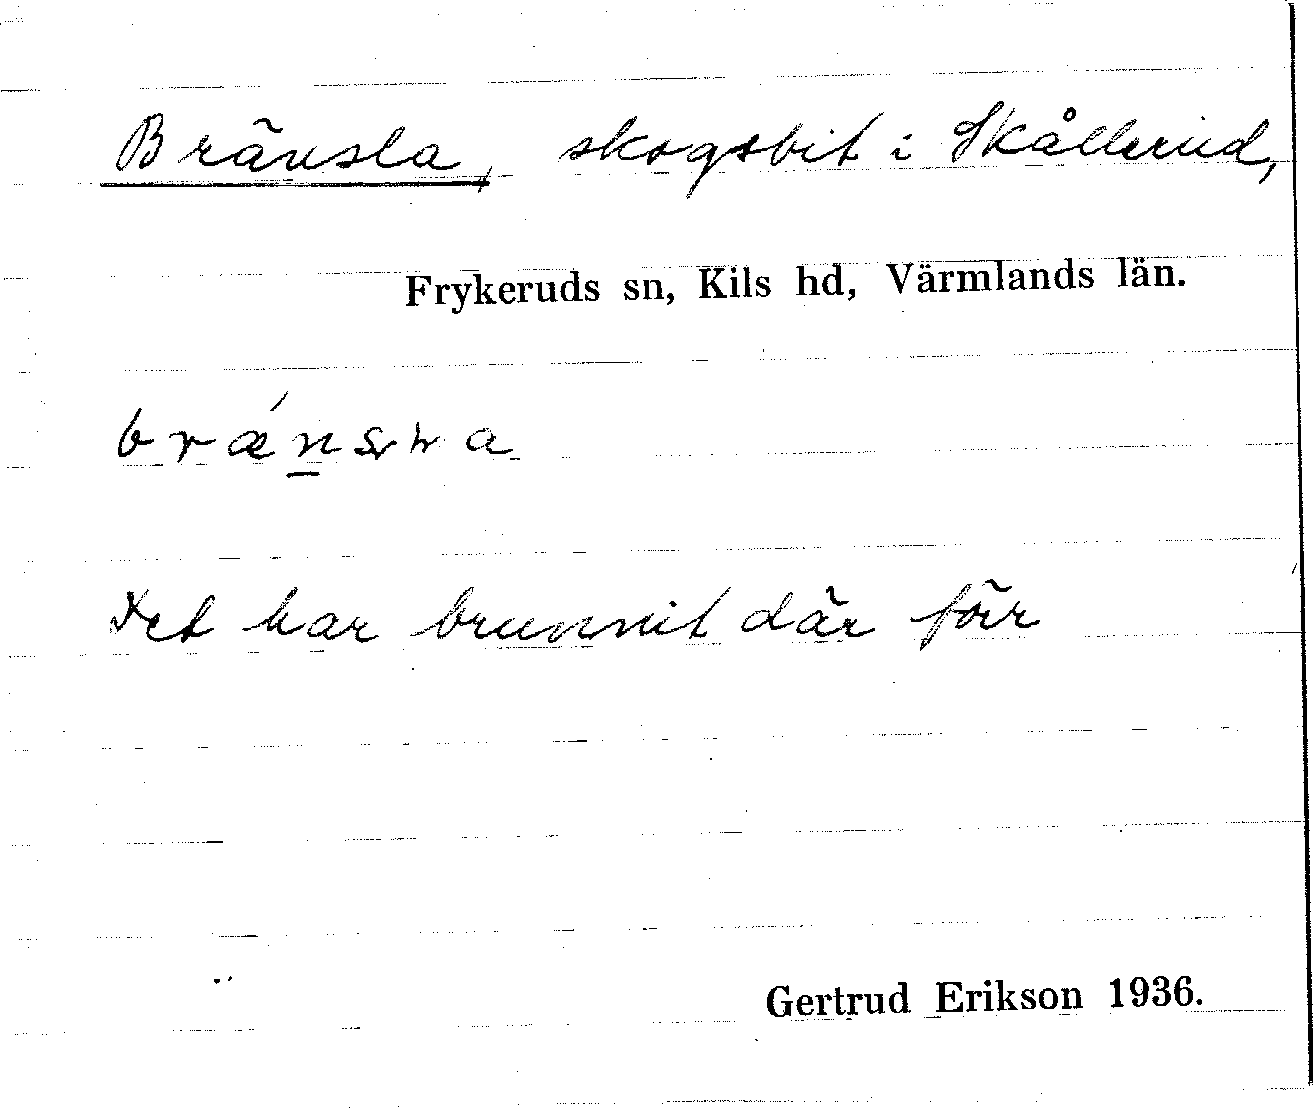 Bränsla, skogsbit i Skållerud,
Frykeruds sn, Kils hd, Värmlands län.
Det har brunnit där förr
Gertrud Erikson 1936.